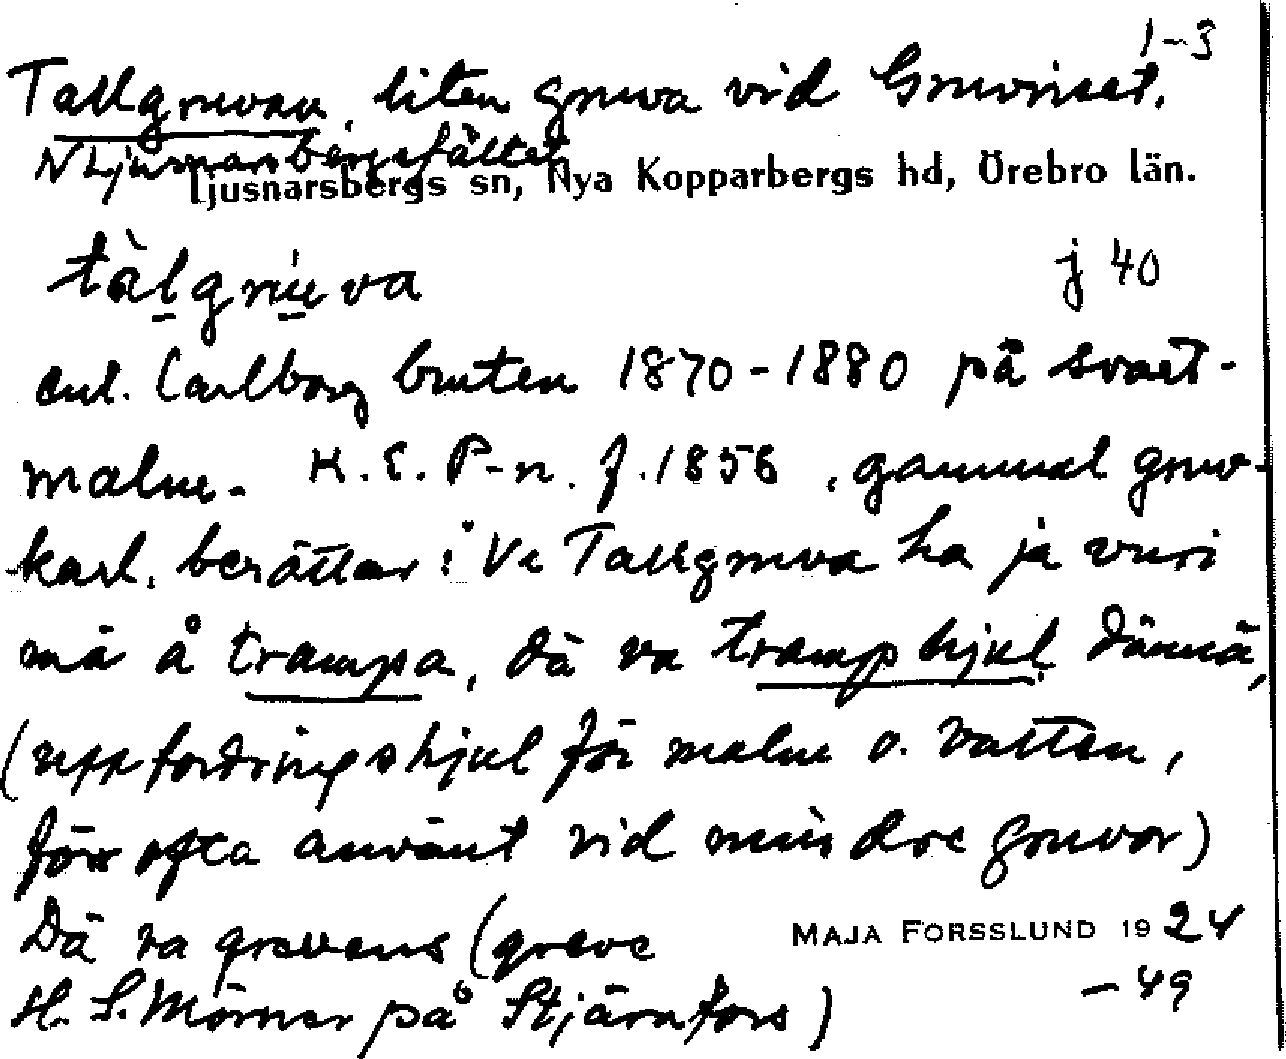 1-3
Tallgruvan, liten gruva vid Gruvriset.
N Ljusnarsbergsfältet
Ljusnarsbergs sn, Nya Kopparbergs hd, Örebro län.
tàlgrúva j 40
enl. Carlborg bruten 1870-1880 på svart-
malm. K. E. P-n. f. 1856, gammal gruv-
karl, berättar: Ve Tallgruva ha ja vuri
mä å trampa, dä va tramphjul dännä,
(uppfordringshjul för malm o. vatten,
förr ofta använt vid mindre gruvor)
Dä va grevens (greve
H. S. Mörner på Stjärnfors)
MAJA FORSSLUND 1924
-49